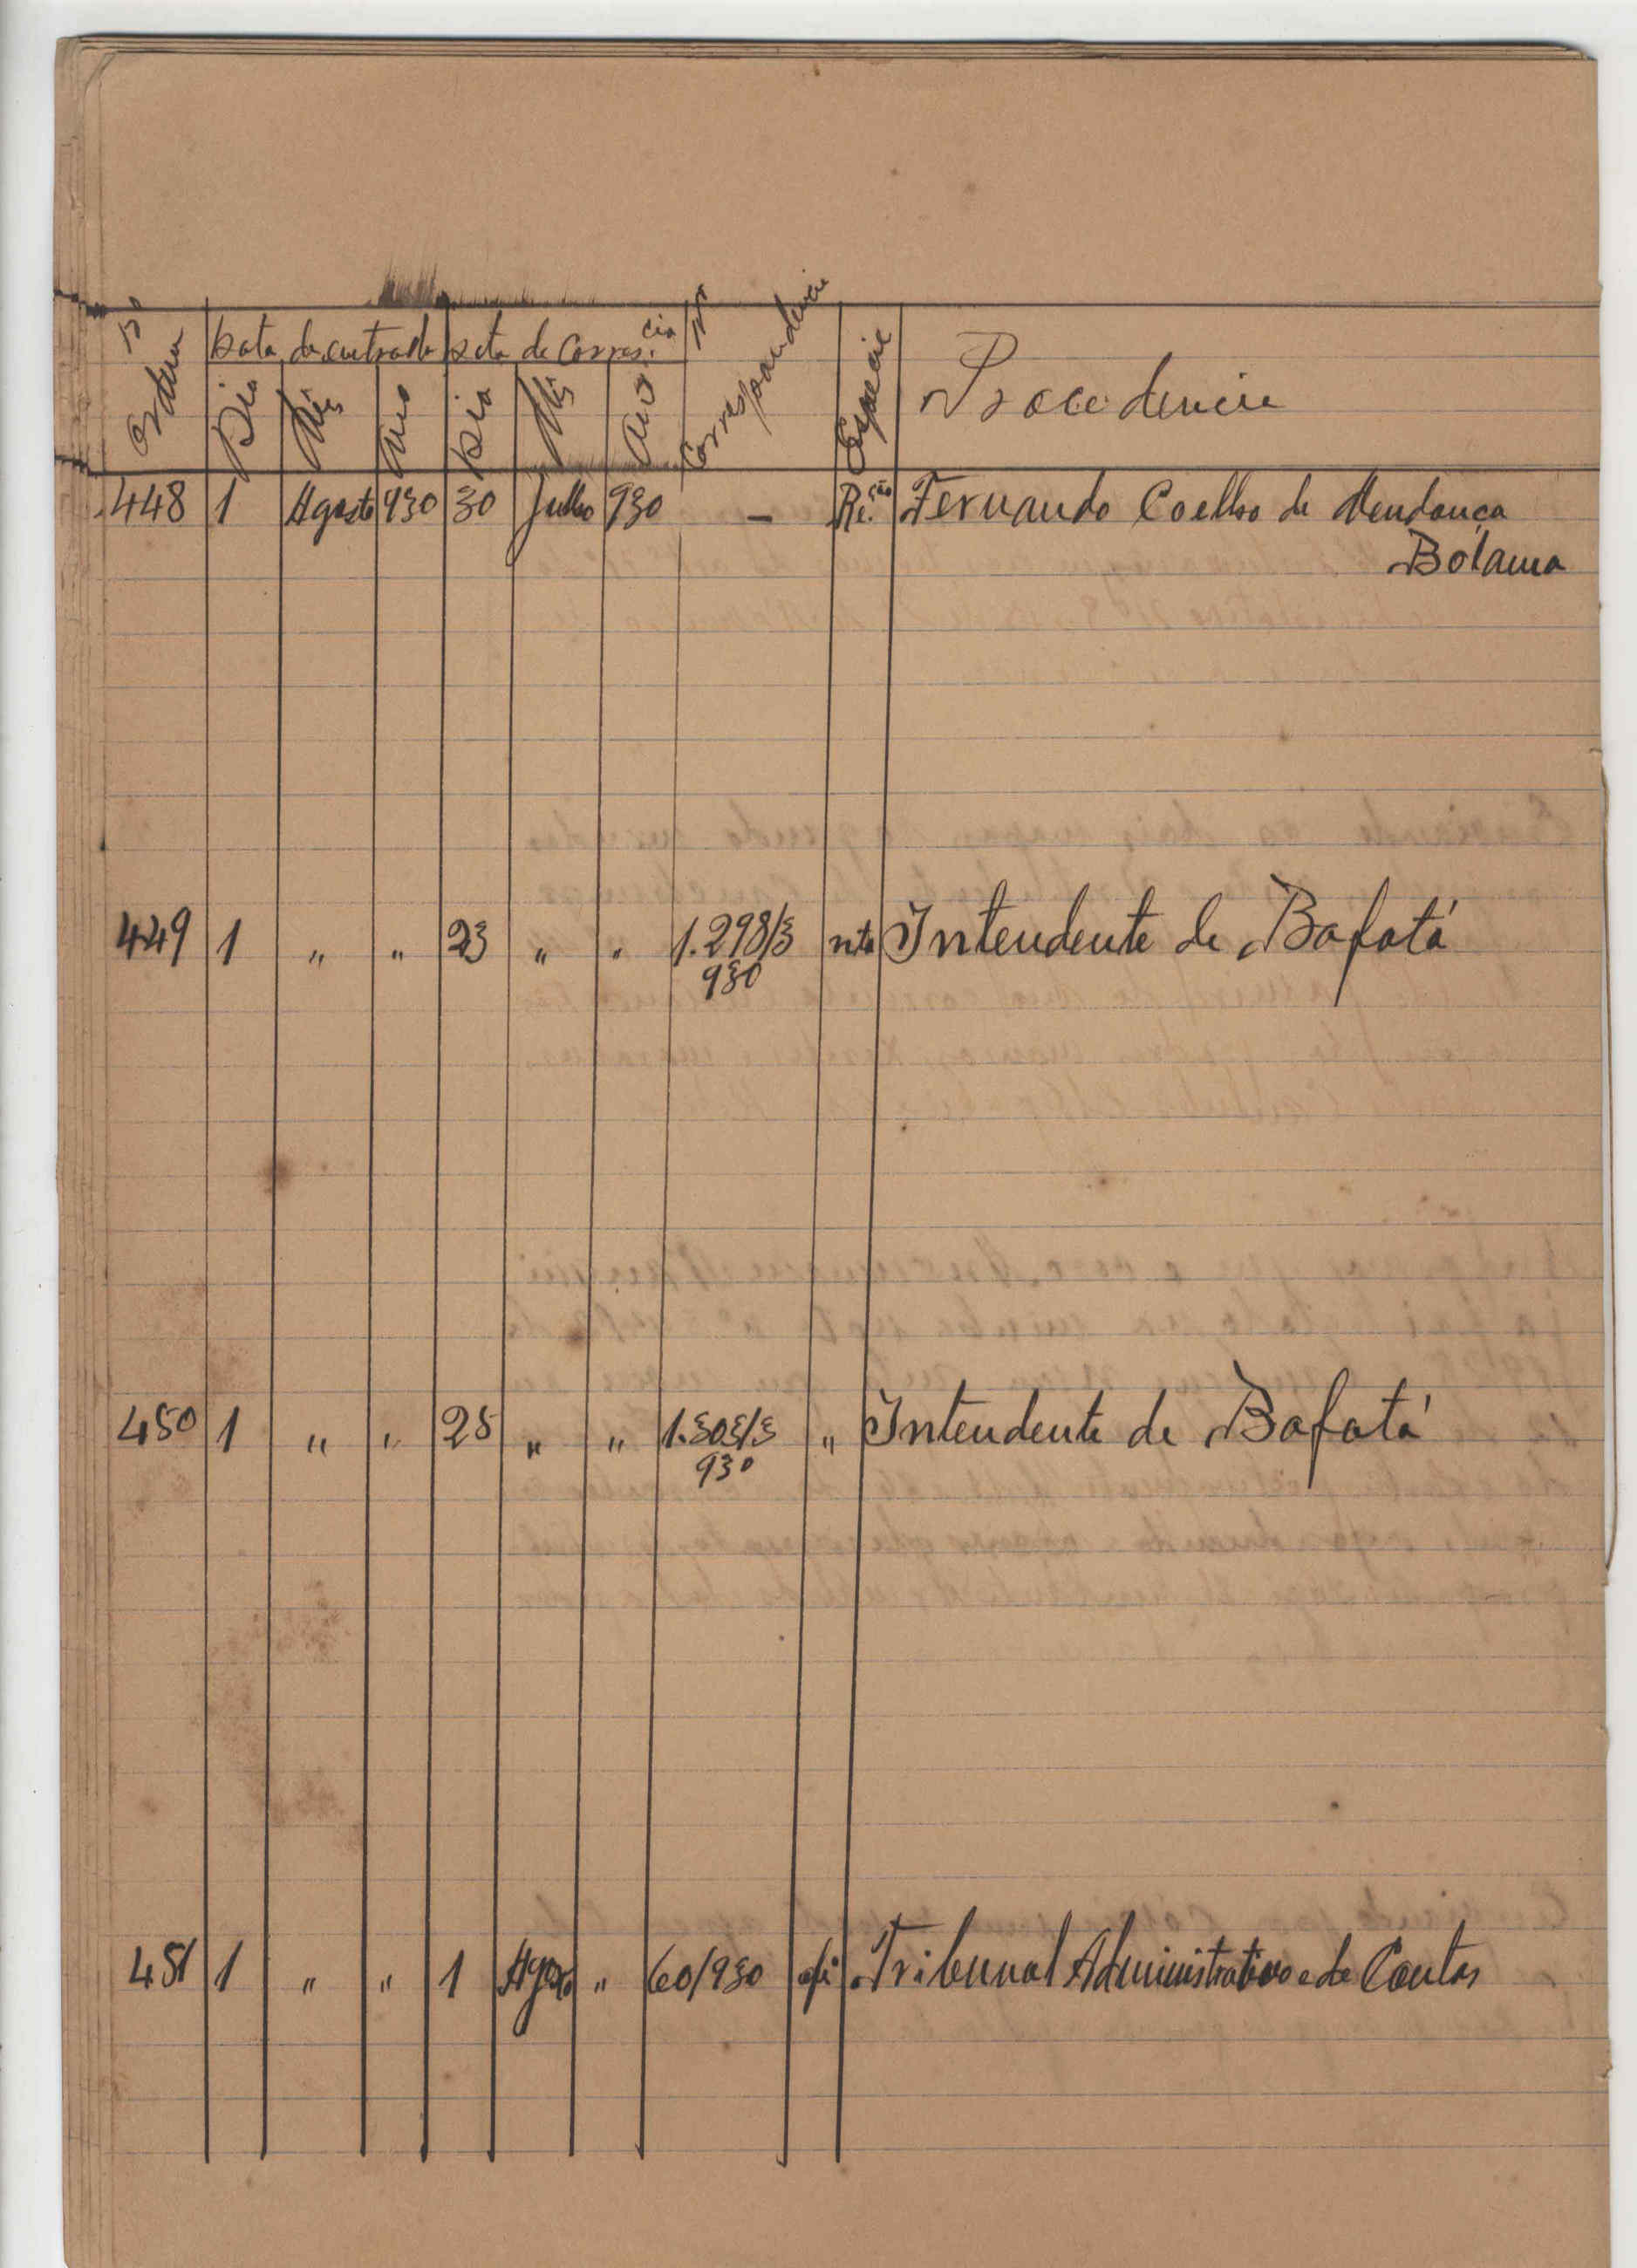 Nº Ordem Data de entrada Data de Corres.cia Nº Correspondencia Especie Procedencia
Dia Mês Ano Dia Mês Ano
448 1 Agosto 930 30 Julho 930 - Re.ção Fernando Coelho de Mendonça
Bolama
449 1 " " 23 " " 1.298/3 nta Intendente de Bafatá
930
450 1 " " 25 " " 1.303/3 " Intendente de Bafatá
930
451 1 " " 1 Agosto " 60/930 ofi Tribunal Administrativo e de Contas